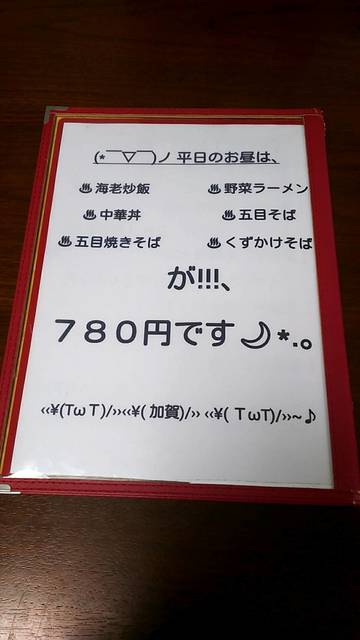 (*￣▽￣)ノ 平日のお昼は、
♨海老炒飯 ♨野菜ラーメン
♨中華丼 ♨五目そば
♨五目焼きそば ♨くずかけそば
が!!!、
７８０円です🌙*.。
‹‹\(TωT)/››‹‹\( 加賀)/›› ‹‹\( TωT)/››~♪